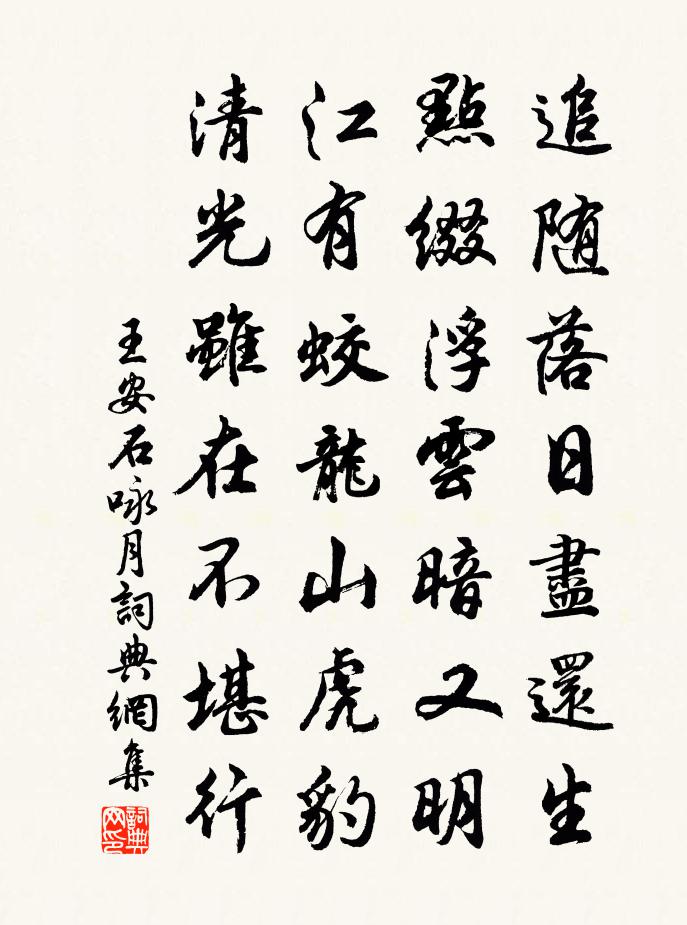 追随落日盡還生
點綴浮雲暗又明
江有蛟龍山虎豹
清光雖在不堪行
王安石咏月詞典網集
詞典网印